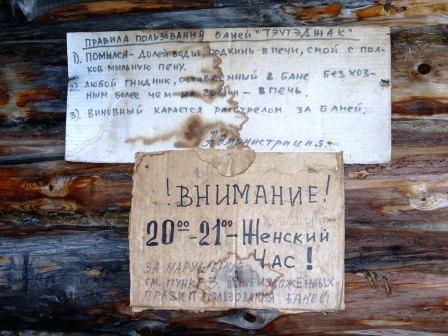 ПРАВИЛА ПОЛЬЗОВАНИЯ БАНЕЙ "ТЭУТЭДЖАК"
1). ПОМЫЛСЯ - ДОЛЕЙ ВОДЫ, ПОДКИНЬ В ПЕЧИ, СМОЙ С ПОЛ-
КОВ МЫЛЬНУЮ ПЕНУ.
2) ЛЮБОЙ ГНИДНИК, ОСТАВЛЕННЫЙ В БАНЕ БЕСХОЗ-
НЫМ БОЛЕЕ ЧЕМ НА 20 МИН - В ПЕЧЬ.
3) ВИНОВНЫЙ КАРАЕТСЯ РАССТРЕЛОМ ЗА БАНЕЙ.
Администрация.
! ВНИМАНИЕ!
20⁰⁰-21⁰⁰-ЖЕНСКИЙ
ЧАС!
ЗА НАРУШЕНИЕ
СМ. ПУНКТ 3, ВЫШЕИЗЛОЖЕННЫХ
ПРАВИЛ ПОЛЬЗОВАНИЯ БАНЕЙ